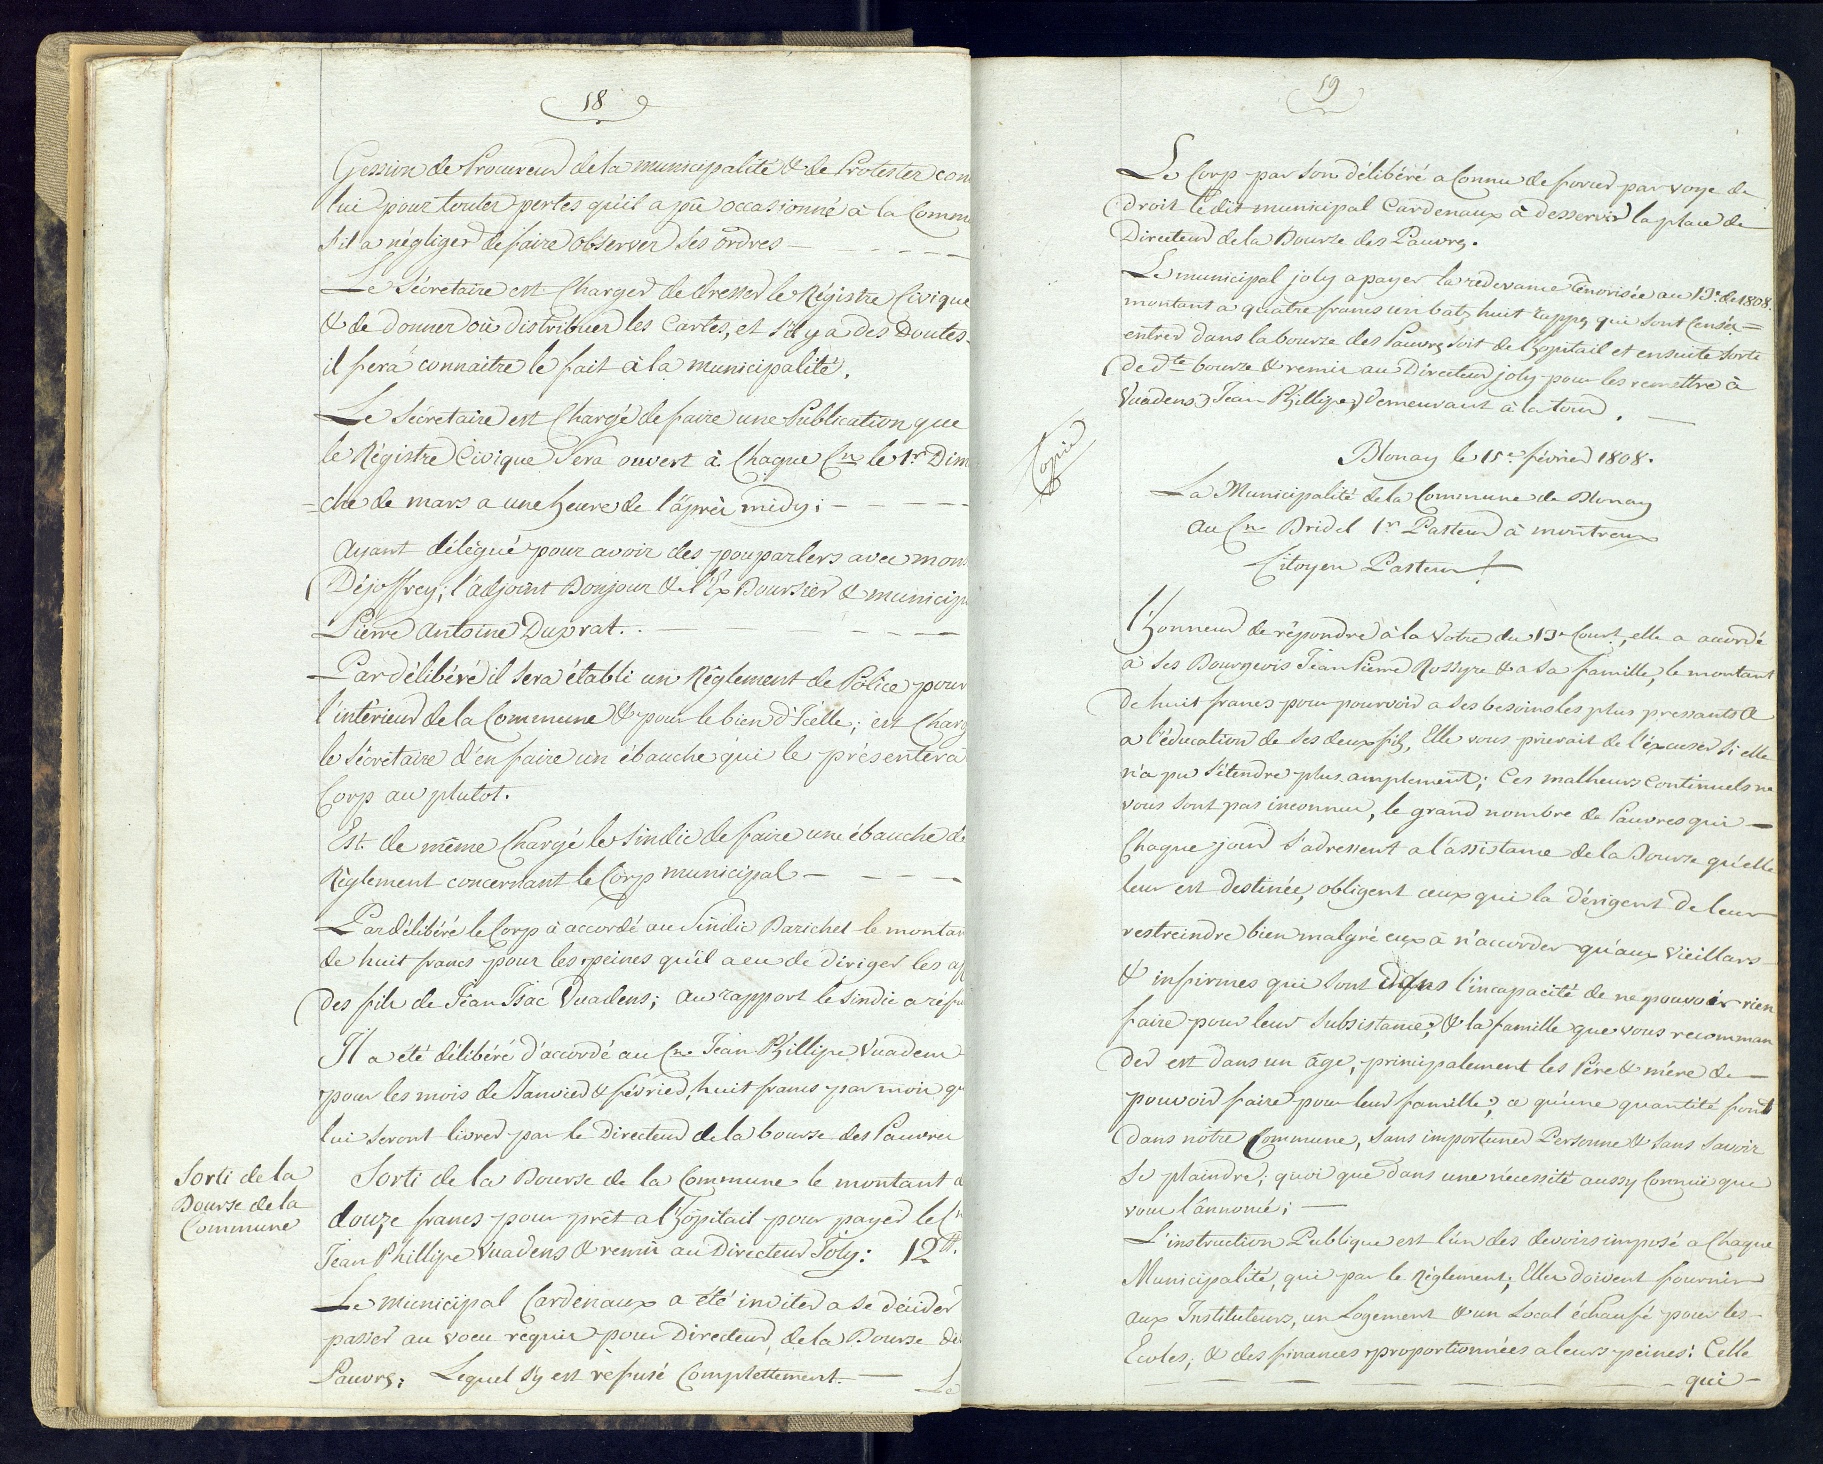 18
Gession de Procureur de la municipalité & de Protester con
lui pour toutes pertes qu'il a pû occasionné à la Comm
s'il a négliger de faire observer ses ordres —
Le Sécretaire est Charger de dresser le Régistre Civique
& de donner où distribuer les Cartes, et s'il y a des Doutes
il fera connaitre le fait à la municipalité.
Le Sécretaire est Chargé de faire une Publication que
le Régistre Civique Sera ouvert à Chaque Cn le 1r Dim
=che de mars a une heure de l'après midy; —
Ayant délégué pour avoir des pouparlers avec mons
Déjoffrey, l'adjoint Bonjour & l'Ex Boursier & municip
Pierre Antoine Duprat. —
Par délibéré il sera établi un Règlement de Police pour
l'intérieur de la Commune & pour le bien d'Icelle; est Charg
le Sécretaire d'en faire un ébauche qui le présentera
Corp au plutot.
Est de même Chargé le Sindic de faire une ébauche de
Règlement concernant le Corp municipal —
Par délibéré le Corp à accordé au Sindic Barichel le montan
de huit francs pour les peines qu'il a eu de diriger les af
des fils de Jéan Isac Vuadens; au rapport le Sindic a réfu
Il a été délibéré d'accordé au Cn Jean Phillipe Vuadens
pour les mois de Janvier & février, huit francs par mois q
lui seront livrer par le Directeur de la bourse des Pauvres
Sorti de la
Bourse de la
Commune
Sorti de la Bourse de la Commune le montant d
douze francs pour prêt a l'hôpitail pour payer le C
Jean Phillipe Vuadens & remis au Directeur Joly: 12 tt.
Le municipal Cardenaux a été inviter a se décider
passer au voeu réquis pour Directeur de la Bourse de
Pauvrs; Lequel s'y est réfusé Complettement. —
Le
19
Le Corp par son délibéré a Connu de forcer par voye de
droit le dit municipal Cardenaux à desservir la place de
Directeur de la Bourse des Pauvrs.
Le municipal joly a payer la rédevance Ténorisée au 13e de 1808.
montant a quatre francs un batz huit rappes qui sont Censés =
entrer dans la bourse des Pauvrs soit de l'hopitail et ensuite Sorti
de dte bourse & remis au Directeur joly pour les remettre à
Vuadens Jean Phillipe, demeurant à la tour. —
Copie
Blonay le 15e février 1808.
La Municipalité de la Commune de Blonay
au Cn Bridel 1r Pasteur à montreux
Citoyen Pasteur!
l'honneur de répondre à la Votre du 13e Court, elle a accordé
à ses Bourgeois Jéan Pierre Rossyre & a sa famille, le montant
de huit francs pour pourvoir a ses besoins les plus pressants &
a l'éducation de ses deux fils, Elle vous prierait de l'éxcuser si elle
n'a pu s'étendre plus amplement; Ces malheurs continuels ne
vous sont pas inconnus, le grand nombre de Pauvres qui —
Chaque jour s'adressent a l'assistance de la Bourse qu'elle
leur est destinée, obligent ceux qui la dérigent de leur
restreindre bien malgré eux à n'accorder qu'aux vieillars
& infirmes qui sont dans l'incapacité de ne pouvoir rien
faire pour leur Subsistance; & la famille que vous recomman
der est dans un âge, principalement les Père & mére de —
pouvoir faire pour leur famille, ce qu'une quantité font
dans nôtre Commune, sans importuner Personne & sans savoir
se plaindre; quoi que dans une nécessité aussy Connue que
vous l'annoncé; —
L'instruction Publique est l'un des devoirs imposé a Chaque
Municipalité, qui par le Règlement; Elles doivent fournir
aux Instituteurs, un Logement & un Local échaufé pour les
Ecoles; & des finances proportionnées a leurs peines: Celle
qui —